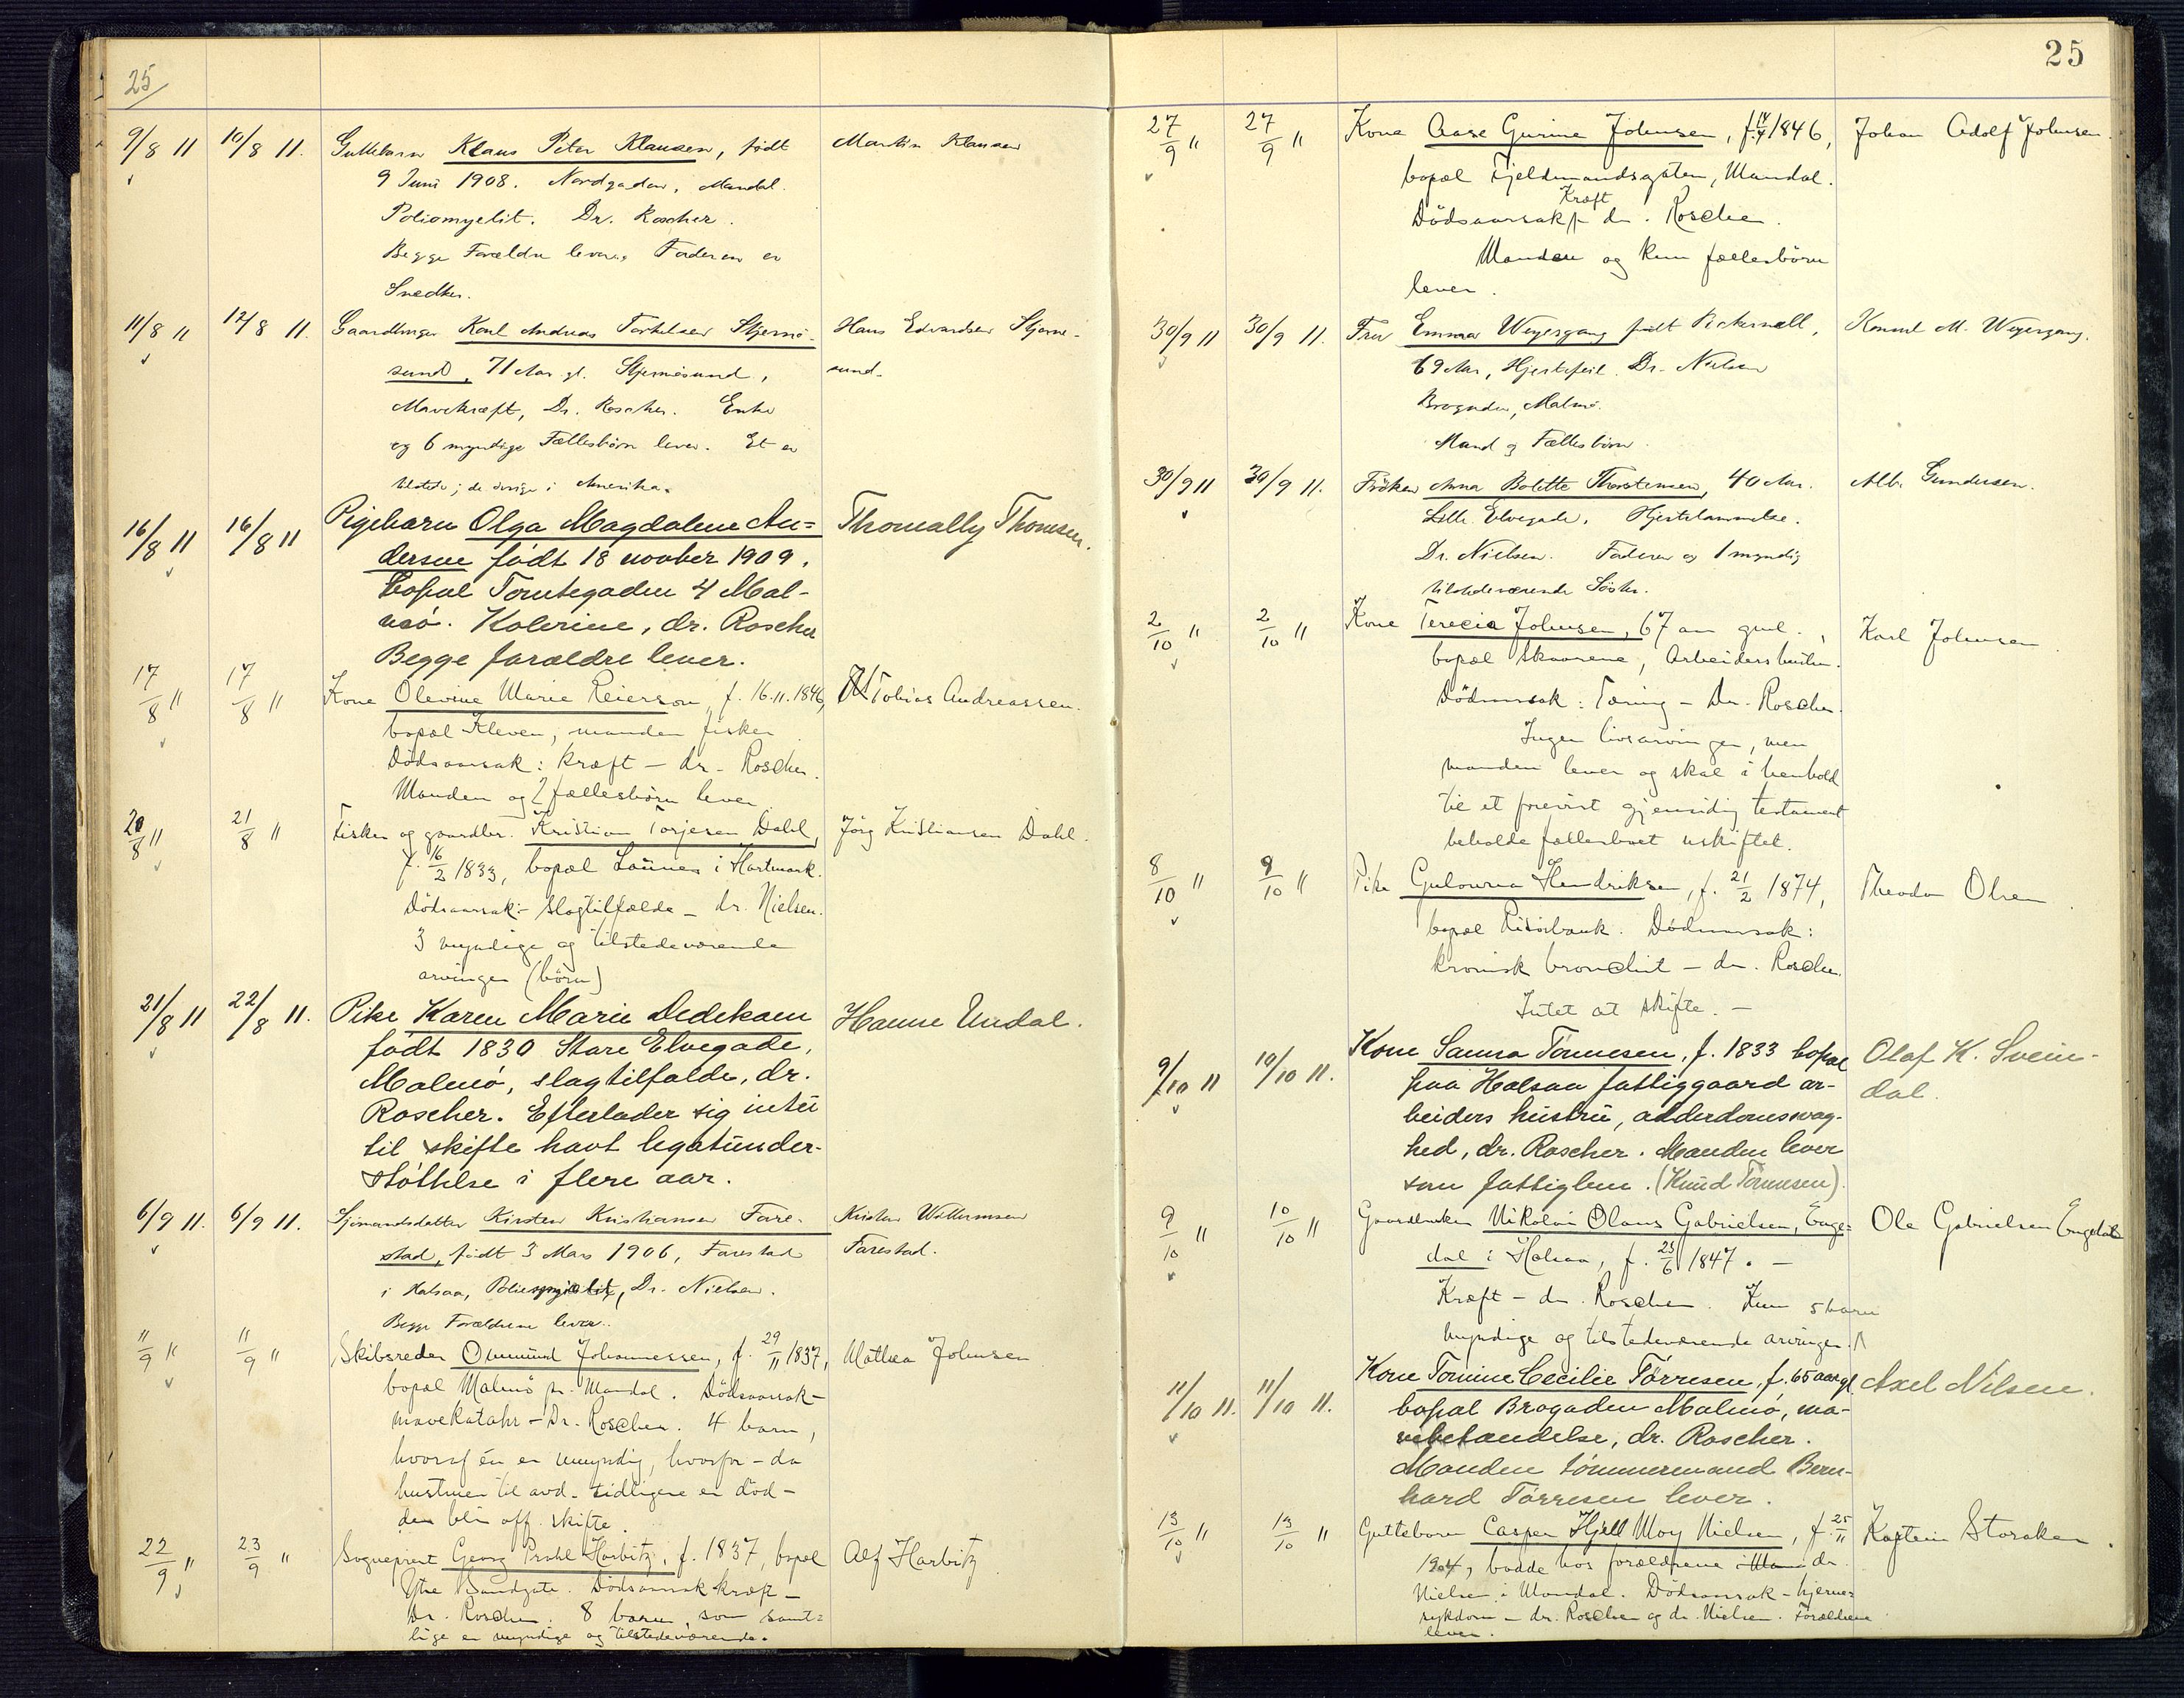 25
9/8 11 10/8 11. Guttebarn Klaus Peter Klausen, født Martin Klausen
9 Juni 1908. Nordgaden, Mandal.
Poliomyelit. Dr. Roscher.
Begge Forældre lever. Faderen er
Snedker.
11/8 11 12/8 11. Gaardbruger Karl Andreas Torkelsen Skjernø- Hans Edvardsen Skjerne-
sund, 71 Aar gl. Skjernøsund, sund.
Mavekræft, Dr. Roscher. Enke
og 6 myndige Fællesbørn lever. Et er
tilstede; de øvrige i Amerika.
16/8 11 16/8 11 Pigebarn Olga Magdalene An= Thomally Thomsen.
dersen født 18 novber 1909.
Bopæl Tomtegaden 4 Mal-
mø. Kolerine, dr. Roscher
Begge forældre lever.
17/8 " 17/8 " Kone Olevine Marie Reierson, f. 16.11.1846, Tobias Andreassen.
bopæl Kleven, manden fisker
Dødsaarsak: kræft – dr. Roscher.
Manden og 2 fællesbørn lever.
20/8 " 21/8 " Fisker og gaardbr. Kristian Torjesen Dahl, Jørg Kristiansen Dahl.
f. 16/2 1833, bopæl Løunes i Hartmark.
Dødsaarsak:- slagtilfælde – dr. Nielsen.
3 myndige og tilstedeværende
arvinger (børn)
21/8 11 22/8 11. Pike Karen Marie Dedekam Hanne Undal.
født 1830 Store Elvegade,
Malmø, slagtilfælde, dr.
Roscher. Efterlader sig intet
til skifte havt legatunder-
støttelse i flere aar.
6/9 11. 6/9 11. Sjømandsdatter Kirsten Kristiansen Fare- Kristen Willumsen
stad, født 3 Mars 1906, Farestad Farestad.
i Halsaa, Poliomyelit, Dr. Nielsen.
Begge Forældrene lever.
11/9 " 11/9 " Skibsreder Ommund Johannessen, f. 29/11 1837, Mathea Johnsen
bopæl Malmø pr. Mandal. Dødsaarsak –
mavekatahr – Dr. Roscher. 4 barn,
hvoraf én er umyndig, hvorfor – da
hustruen til avd. tidligere er død –
den blir off. skifte.
22/9 " 23/9 " Sogneprest Georg Prahl Harbitz, f. 1837, bopæl Alf Harbitz
Ytre Sandgate. Dødsaarsak kræft –
Dr. Roscher. 8 barn, som samt=
lige er myndige og tilstedeværende.
25
27/9 " 27/9 " Kone Aase Gurine Johnsen, f. 14/4 1846, Johan Adolf Johnsen.
bopæl Fjeldmandsgaten, Mandal.
Kræft
Dødsaarsak dr. Roscher.
Manden og kun fællesbørn
lever.
30/9 11 30/9 11. Fru Emma Weyergang født Pickernell, Konsul M. Weyergang.
69 Aar, Hjertefeil. Dr. Nielsen
Brogaden, Malmø.
Mand og Fællesbørn.
30/9 11 30/9 11. Frøken Anna Bolette Thorstensen, 40 Aar. Alb. Gundersen.
Lille Elvegade, Hjertelammelse.
Dr. Nielsen. Faderen og 1 myndig
tilstedeværende Søster.
2/10 " 2/10 " Kone Terecia Johnsen, 67 aar gml., Karl Johnsen
bopæl Skaarene, Arbeiders hustru.
Dødsaarsak: Tæring – Dr. Roscher.
Ingen livsarvinger, men
manden lever og skal i henhold
til et forevist gjensidig testament
beholde fællesboet uskiftet.
8/10 " 9/10 " Pike Gulowna Hendriksen, f. 21/2 1874, Theodor Olsen
bopæl Risørbank. Dødsaarsak:
kronisk bronchit – dr. Roscher.
Intet at skifte. –
9/10 11 10/10 11. Kone Sanna Tønnesen, f. 1833 bopæl Olaf K. Svein-
paa Halsaa fattiggaard ar- dal.
beiders hustru, alderdomssvag-
hed, dr. Roscher. Manden lever
som fattiglem. (Knud Tønnesen).
9/10 " 10/10 " Gaardbruker Nikolai Olaus Gabrielsen, Enge= Ole Gabrielsen Engedal
dal i Halsaa, f. 23/6 1847. –
Kræft – dr. Roscher. Kun 5 barn
myndige og tilstedeværende arvinger.
11/10 11. 11/10 11. Kone Tomine Cecilie Tørresen, f. 65 aar gl Axel Nilsen.
bopæl Brogaden Malmø, ma-
vebetændelse, dr. Roscher.
Manden tømmermand Bern-
hard Tørresen lever.
13/10 " 13/10 " Guttebarn Casper Kjell Moy Nielsen, f. 25/11 Kaptein Storaker.
1904, bodde hos forældrene dr.
Nielsen i Mandal. Dødsaarsak – hjerne=
sykdom – dr. Roscher og dr. Nielsen. Forældrene
lever.